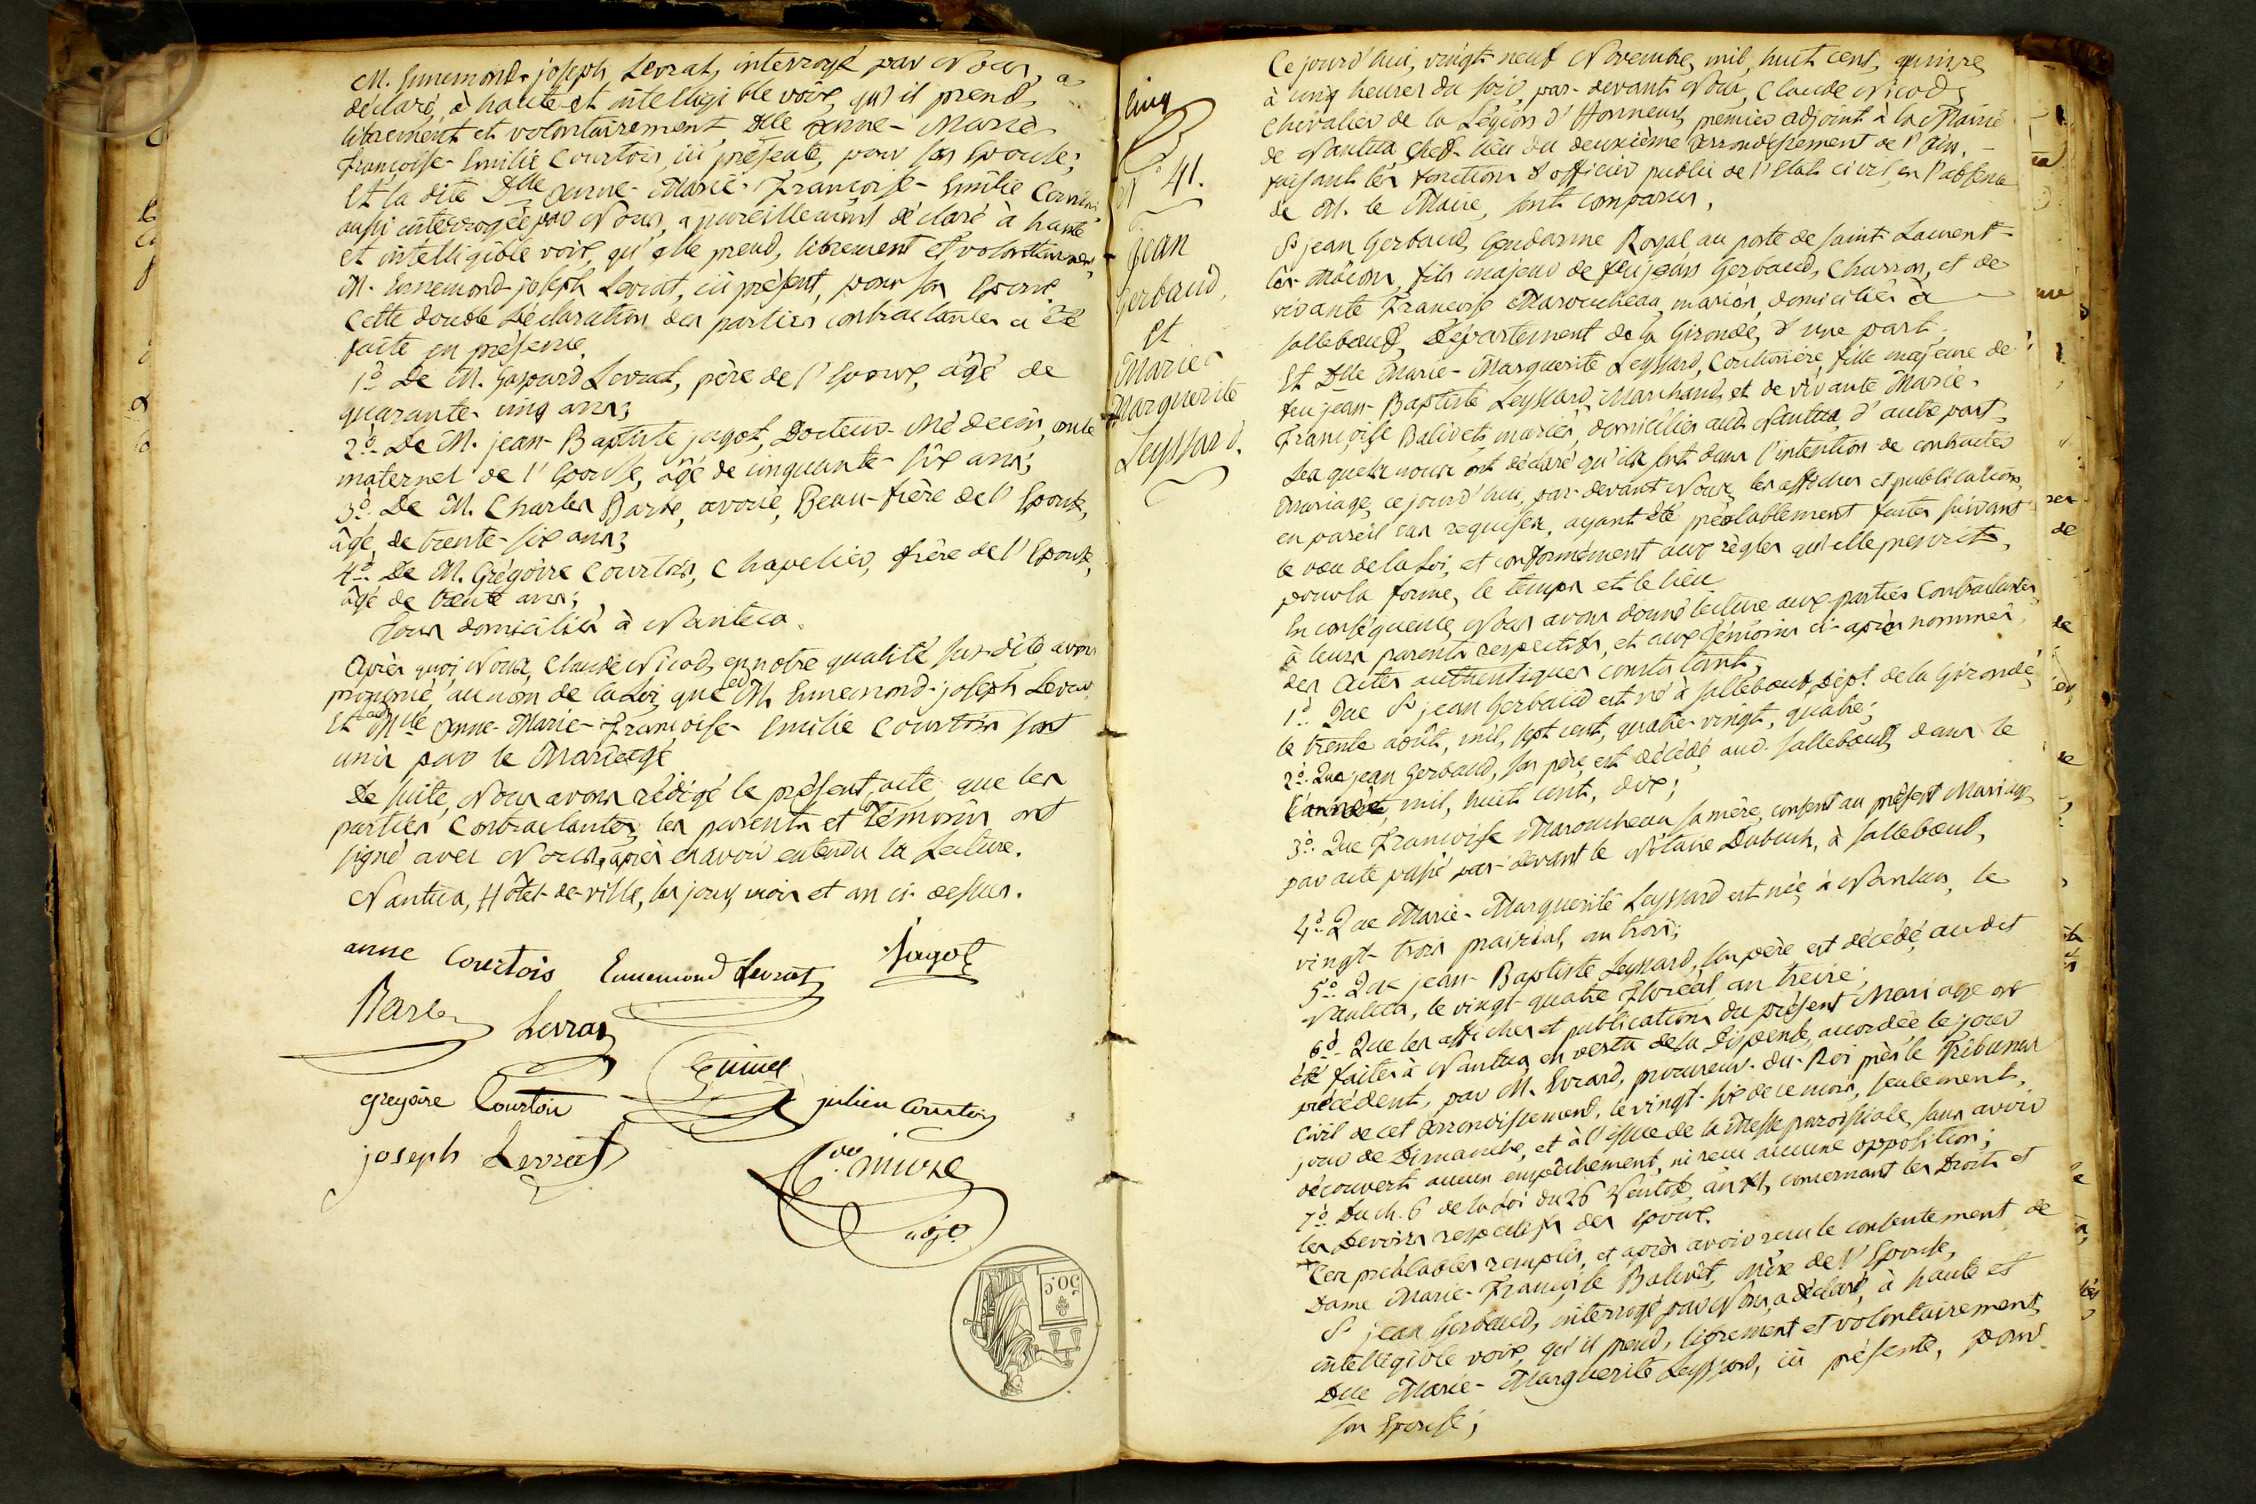 M. Ennemond-joseph Levrat, interrogé par Nous, a
déclaré, à haute et intelligible voix, qu'il prend,
librement et volontairement Dlle Anne-Marie
Françoise-Emilie Courtois, ici présente, pour son Epouse;
Et la dite Dlle Anne-Marie-Françoise-Emilie Courtois,
aussi interrogée par Nous, a pareillement déclaré à haute
et intelligible voix, qu'elle prend, librement et volontairement,
M. Ennemond-joseph Levrat, ici présent, pour son Epoux.
Cette double Déclaration des parties contractantes a été
faite en présence,
1º De M. Gaspard Levrat, père de l'Epoux, âgé de
quarante-cinq ans;
2º De M. jean-Baptiste jagot, Docteur-Médecin, oncle
maternel de l'Epouse, âgé de cinquante-six ans;
3º De M. Charles Barbe, avoué, Beau-frère de l'Epoux,
âgé de trente-six ans;
4º De M. Grégoire Courtois, Chapelier, frère de l'Epouse,
âgé de trente ans;
Tous domiciliés à Nantua.
Après quoi, Nous, Claude Nicod, en notre qualité sus-dite, avons
prononcé, au nom de la Loi, que led. M. Ennemond-joseph Levrat
Et lad. Mlle Anne-Marie-Françoise-Emilie Courtois sont
unis par le Mariage
De suite, Nous avons rédigé le présent acte, que les
parties Contractantes, les parents et Témoins ont
signé avec Nous, après en avoir entendu la Lecture.
Nantua, Hôtel-de-ville, les jour, mois et an ci-dessus.
anne Courtois Ennemond Levrat Jagot
Levrat
gregoire Courtois julien Courtois
joseph Levrat
adjt
50 C.
cinq
Nº 41.
Jean
Gerbaud,
et
Marie
Marguerite
Leyssard.
Ce jourd'hui, vingt-neuf Novembre, mil, huit cent, quinze,
à cinq heures du soir, par-devant Nous, Claude Nicod,
Chevalier de la Légion d'Honneur, premier adjoint à la Mairie
de Nantua Chef-lieu du deuxième Arrondissement de l'Ain,
faisant les fonctions d'officier public de l'Etat civil, en l'absence
de M. le Maire, sont comparus,
Sr jean Gerbaud, Gendarme Royal au poste de saint-Laurent-
lès-Mâcon, fils majeur de feu jean Gerbaud, Charron, et de
vivante Françoise Maroucheau, mariés, domiciliés à
sallebœuf, Département de la Gironde, d'une part,
Et Dlle Marie-Marguerite Leyssard, Couturière, fille majeure de
feu jean-Baptiste Leyssard, Marchand, et de vivante Marie-
Françoise Balivet, mariés, domiciliés aud. Nantua, d'autre part,
Lesquels nous ont déclaré qu'ils sont dans l'intention de contracter
Mariage, ce jourd'hui, par-devant Nous, les affiches et publications,
en pareil cas requises, ayant été préalablement faites suivant
le vœu de la Loi, et conformément aux règles qu'elle prescrit,
pour la forme, le temps et le lieu.
En conséquence, Nous avons donné lecture aux parties Contractantes,
à leurs parents respectifs, et aux Témoins ci-après nommés,
des Actes authentiques constatant,
1º Que Sr jean Gerbaud est né à sallebœuf, Dépt. de la Gironde,
le trente août, mil, sept cent, quatre-vingt, quatre;
2º. Que jean Gerbaud, son père, est décédé aud. sallebœuf, dans le
l'année, mil, huit cent, dix;
3º. Que Françoise Maroucheau sa mère, consent au présent Mariage,
par acte passé par-devant le Notaire Dubuch, à sallebœuf,
4º Que Marie-Marguerite Leyssard est née à Nantua, le
vingt-trois prairial, an trois;
5º. Que jean-Baptiste Leyssard, son père, est décédé, audit
Nantua, le vingt-quatre floréal, an treize;
6º. Que les affiches et publications du présent Mariage ont
été faites à Nantua, en vertu de la Dispense, accordée le jour
précédent, par M. Evrard, procureur-du-Roi près le Tribunal
Civil de cet Arrondissement, le vingt-six de ce mois, seulement,
jour de Dimanche, et à l'issue de la Messe paroissiale, sans avoir
découvert aucun empêchement, ni reçu aucune opposition;
7º. Du ch. 6 de la Loi du 26 Ventôse, an XI, concernant les Droits et
les Devoirs respectifs des Epoux.
Ces préalables remplis, et après avoir reçu le consentement de
Dame Marie-Françoise Balivet, Mère de l'Epouse,
Sr jean Gerbaud, interrogé par Nous, a déclaré, à haute et
intelligible voix, qu'il prend, librement et volontairement,
Dlle Marie-Marguerite Leyssard, ici présente, pour
son Epouse;